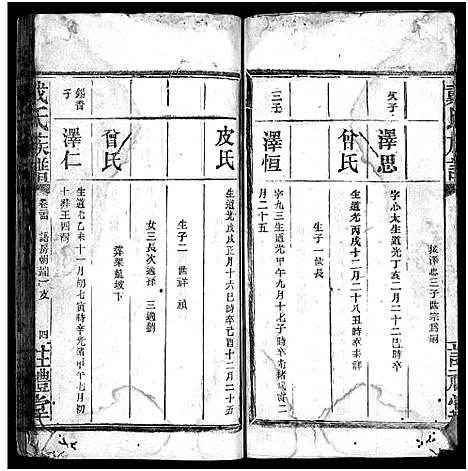 戴氏族譜
次子
澤思
字心太生道光丁亥二月二十二巳時卒
撫澤忠三子世宗爲嗣
曾氏
生道光丙戌十二月二十八丑時卒未詳
生子一 世長
三子
澤恒
字九三生道光甲午九月十七子時卒
月二十五
皮氏
生道光戊戌正月十六巳時卒己酉十二月二十五
生子二 世祥 禎
曾氏
女三長次適孫 三適劉
葬栗蔸坡下
子
澤仁
生道光乙未十一月初七寅時卒光緒甲午七月初
十葬王四灣
戴氏族譜
卷壽
語房朝 一支
四
注禮堂